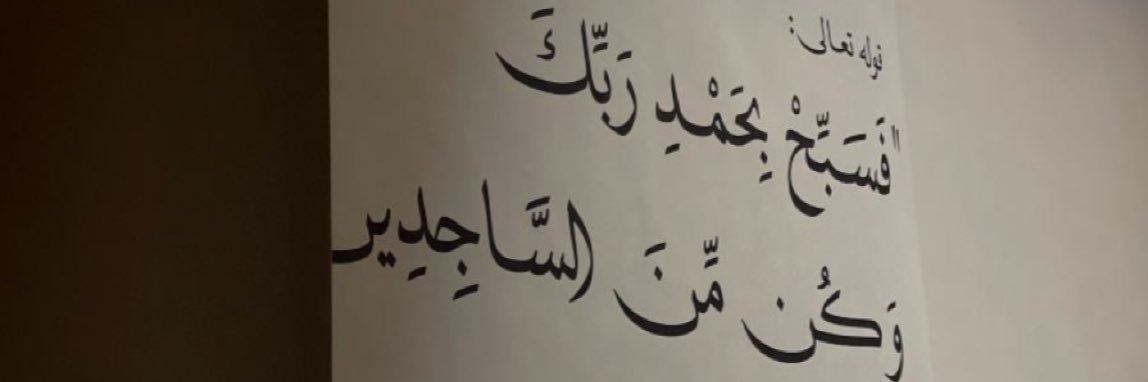 قوله تعالى:
"فَسَبِّحْ بِحَمْدِ رَبِّكَ
وَكُن مِّنَ السَّاجِدِير